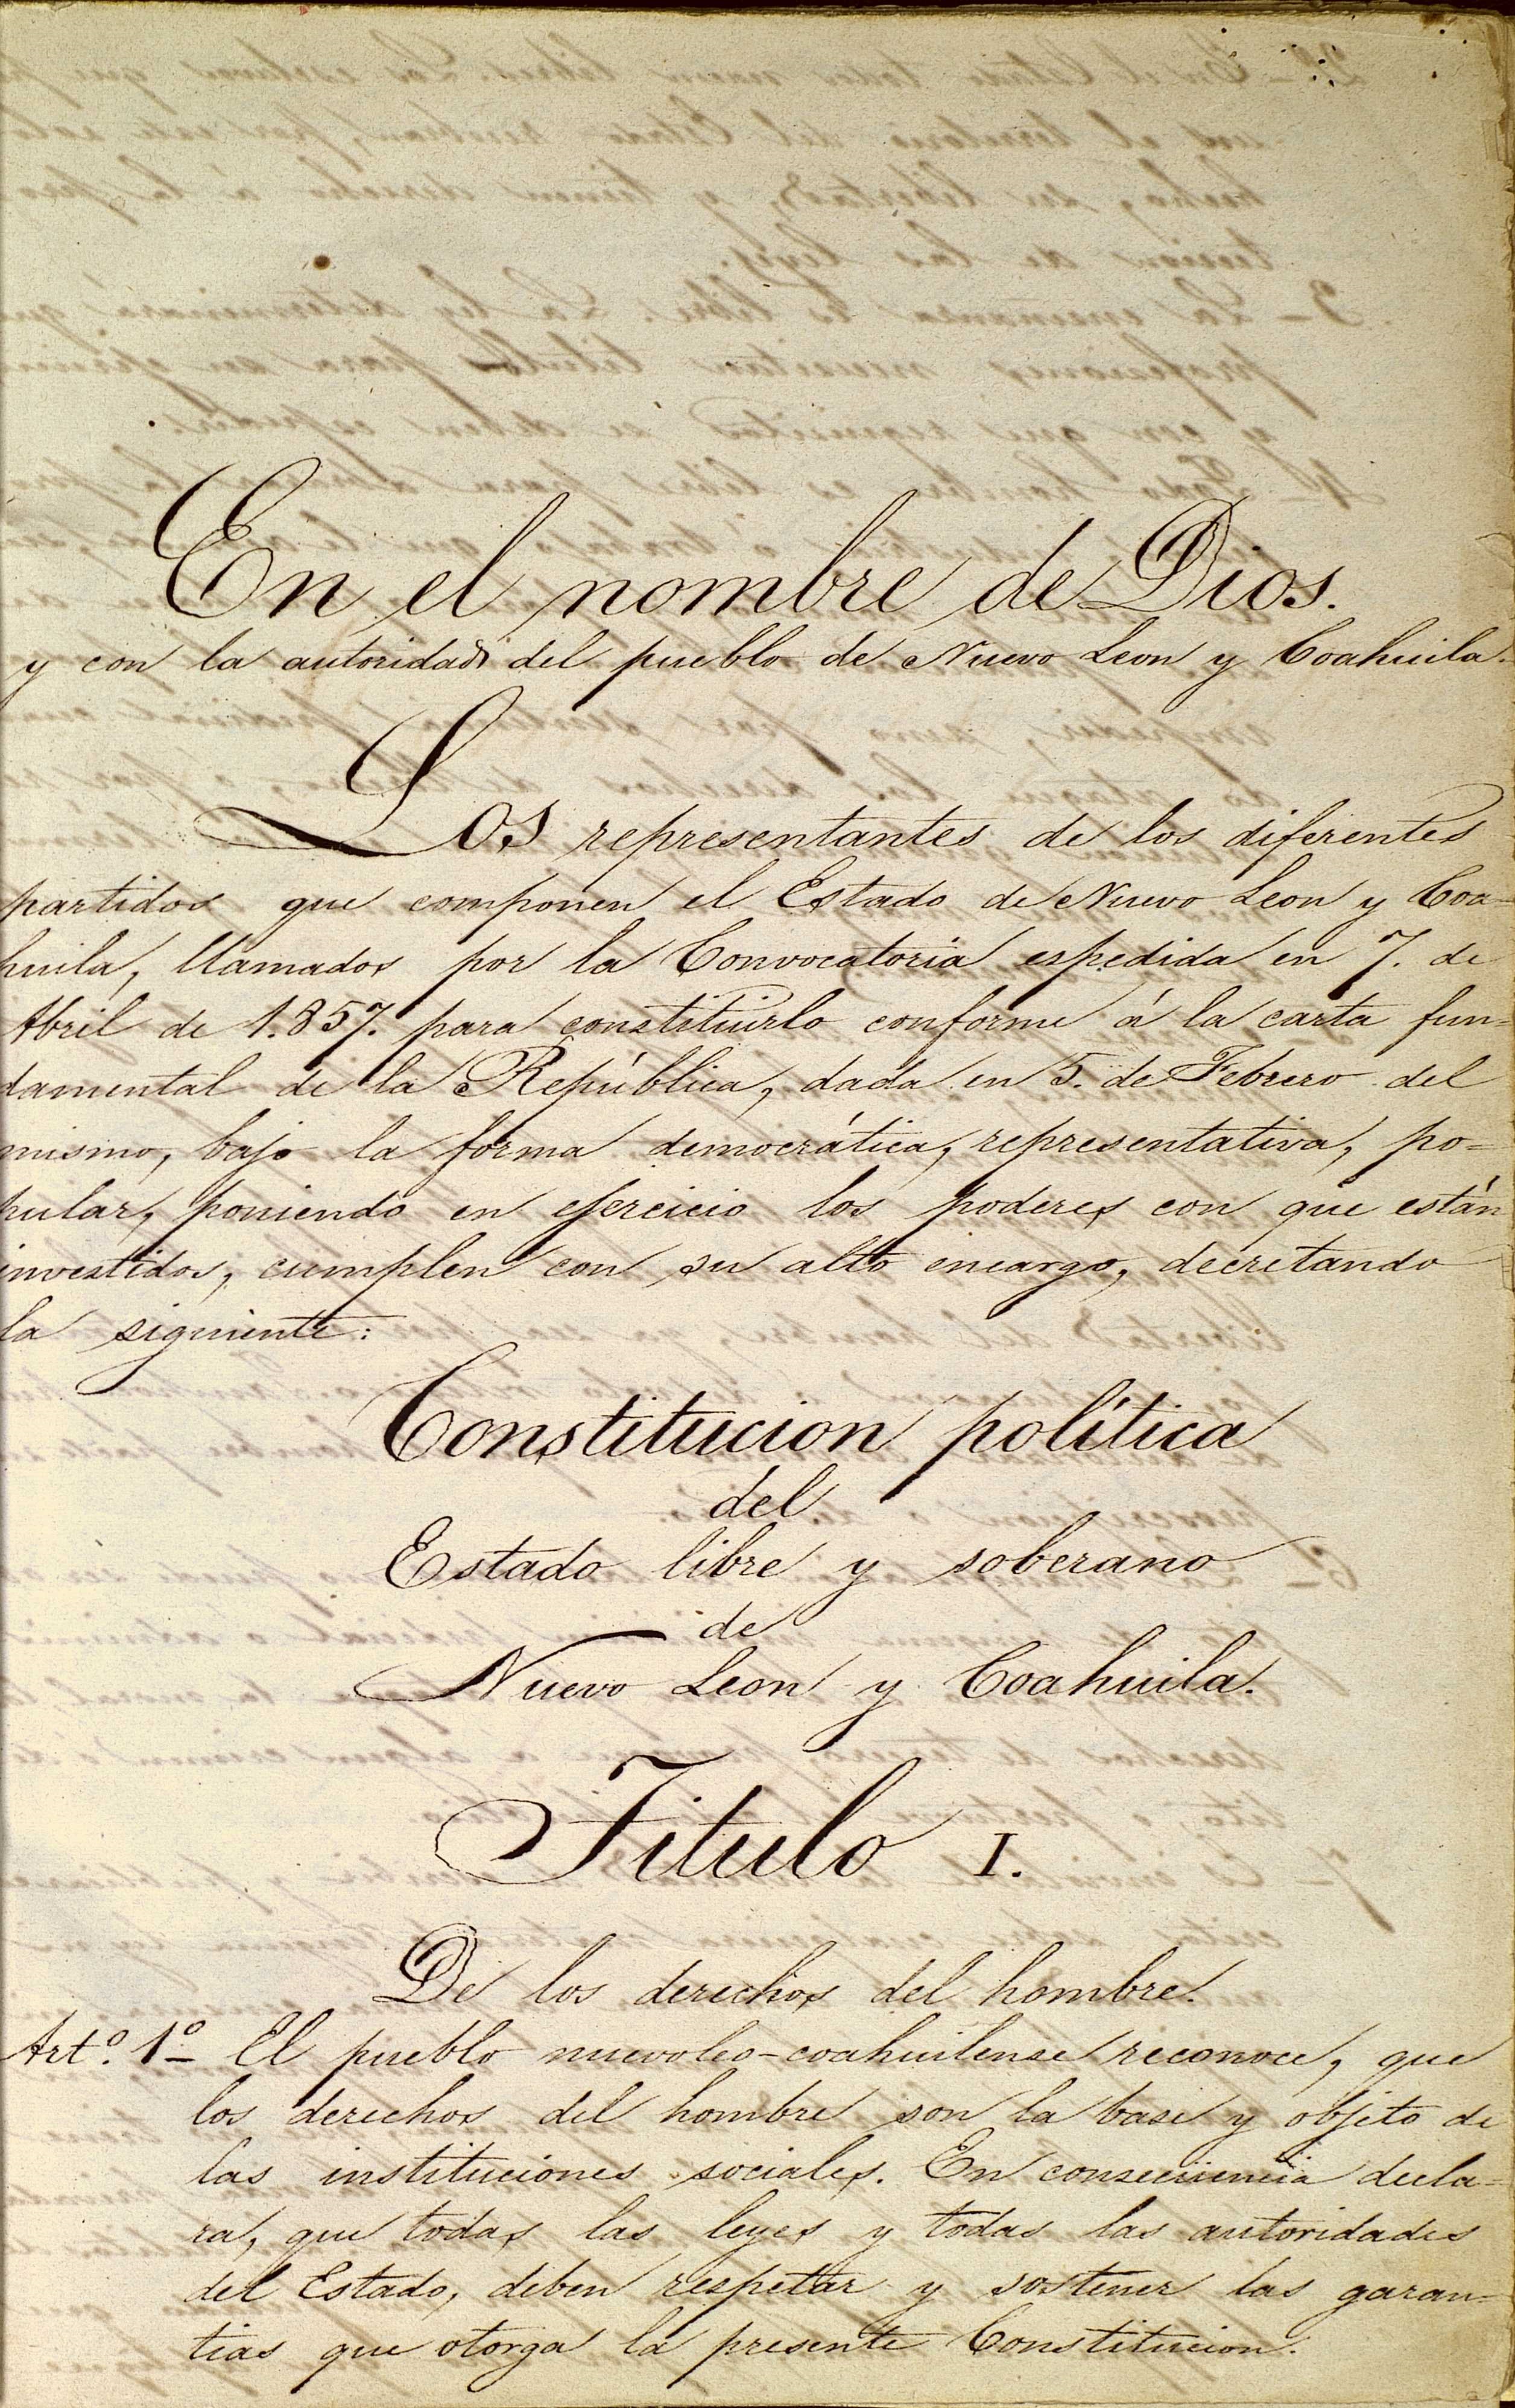 En el nombre de Dios.
y con la autoridad del pueblo de Nuevo Leon y Coahuila.
Los representantes de los diferentes
partidos que componen el Estado de Nuevo Leon y Coa-
huila, llamados por la Convocatoria espedida en 7. de
Abril de 1.857. para constituirlo conforme á la carta fun-
damental de la República, dada en 5. de Febrero del
mismo, bajo la forma democrática, representativa, po-
pular, poniendo en ejercicio los poderes con que están
investidos, cumplen con su alto encargo, decretando
la siguiente:
Constitucion política
del
Estado libre y soberano
de
Nuevo Leon y Coahuila.
Titulo I.
De los derechos del hombre.
Art.º 1º El pueblo nuevoleo-coahuilense reconoce, que
los derechos del hombre son la base y objeto de
las instituciones sociales. En consecuencia decla-
ra, que todas las leyes y todas las autoridades
del Estado, deben respetar y sostener las garan-
tias que otorga la presente Constitucion.